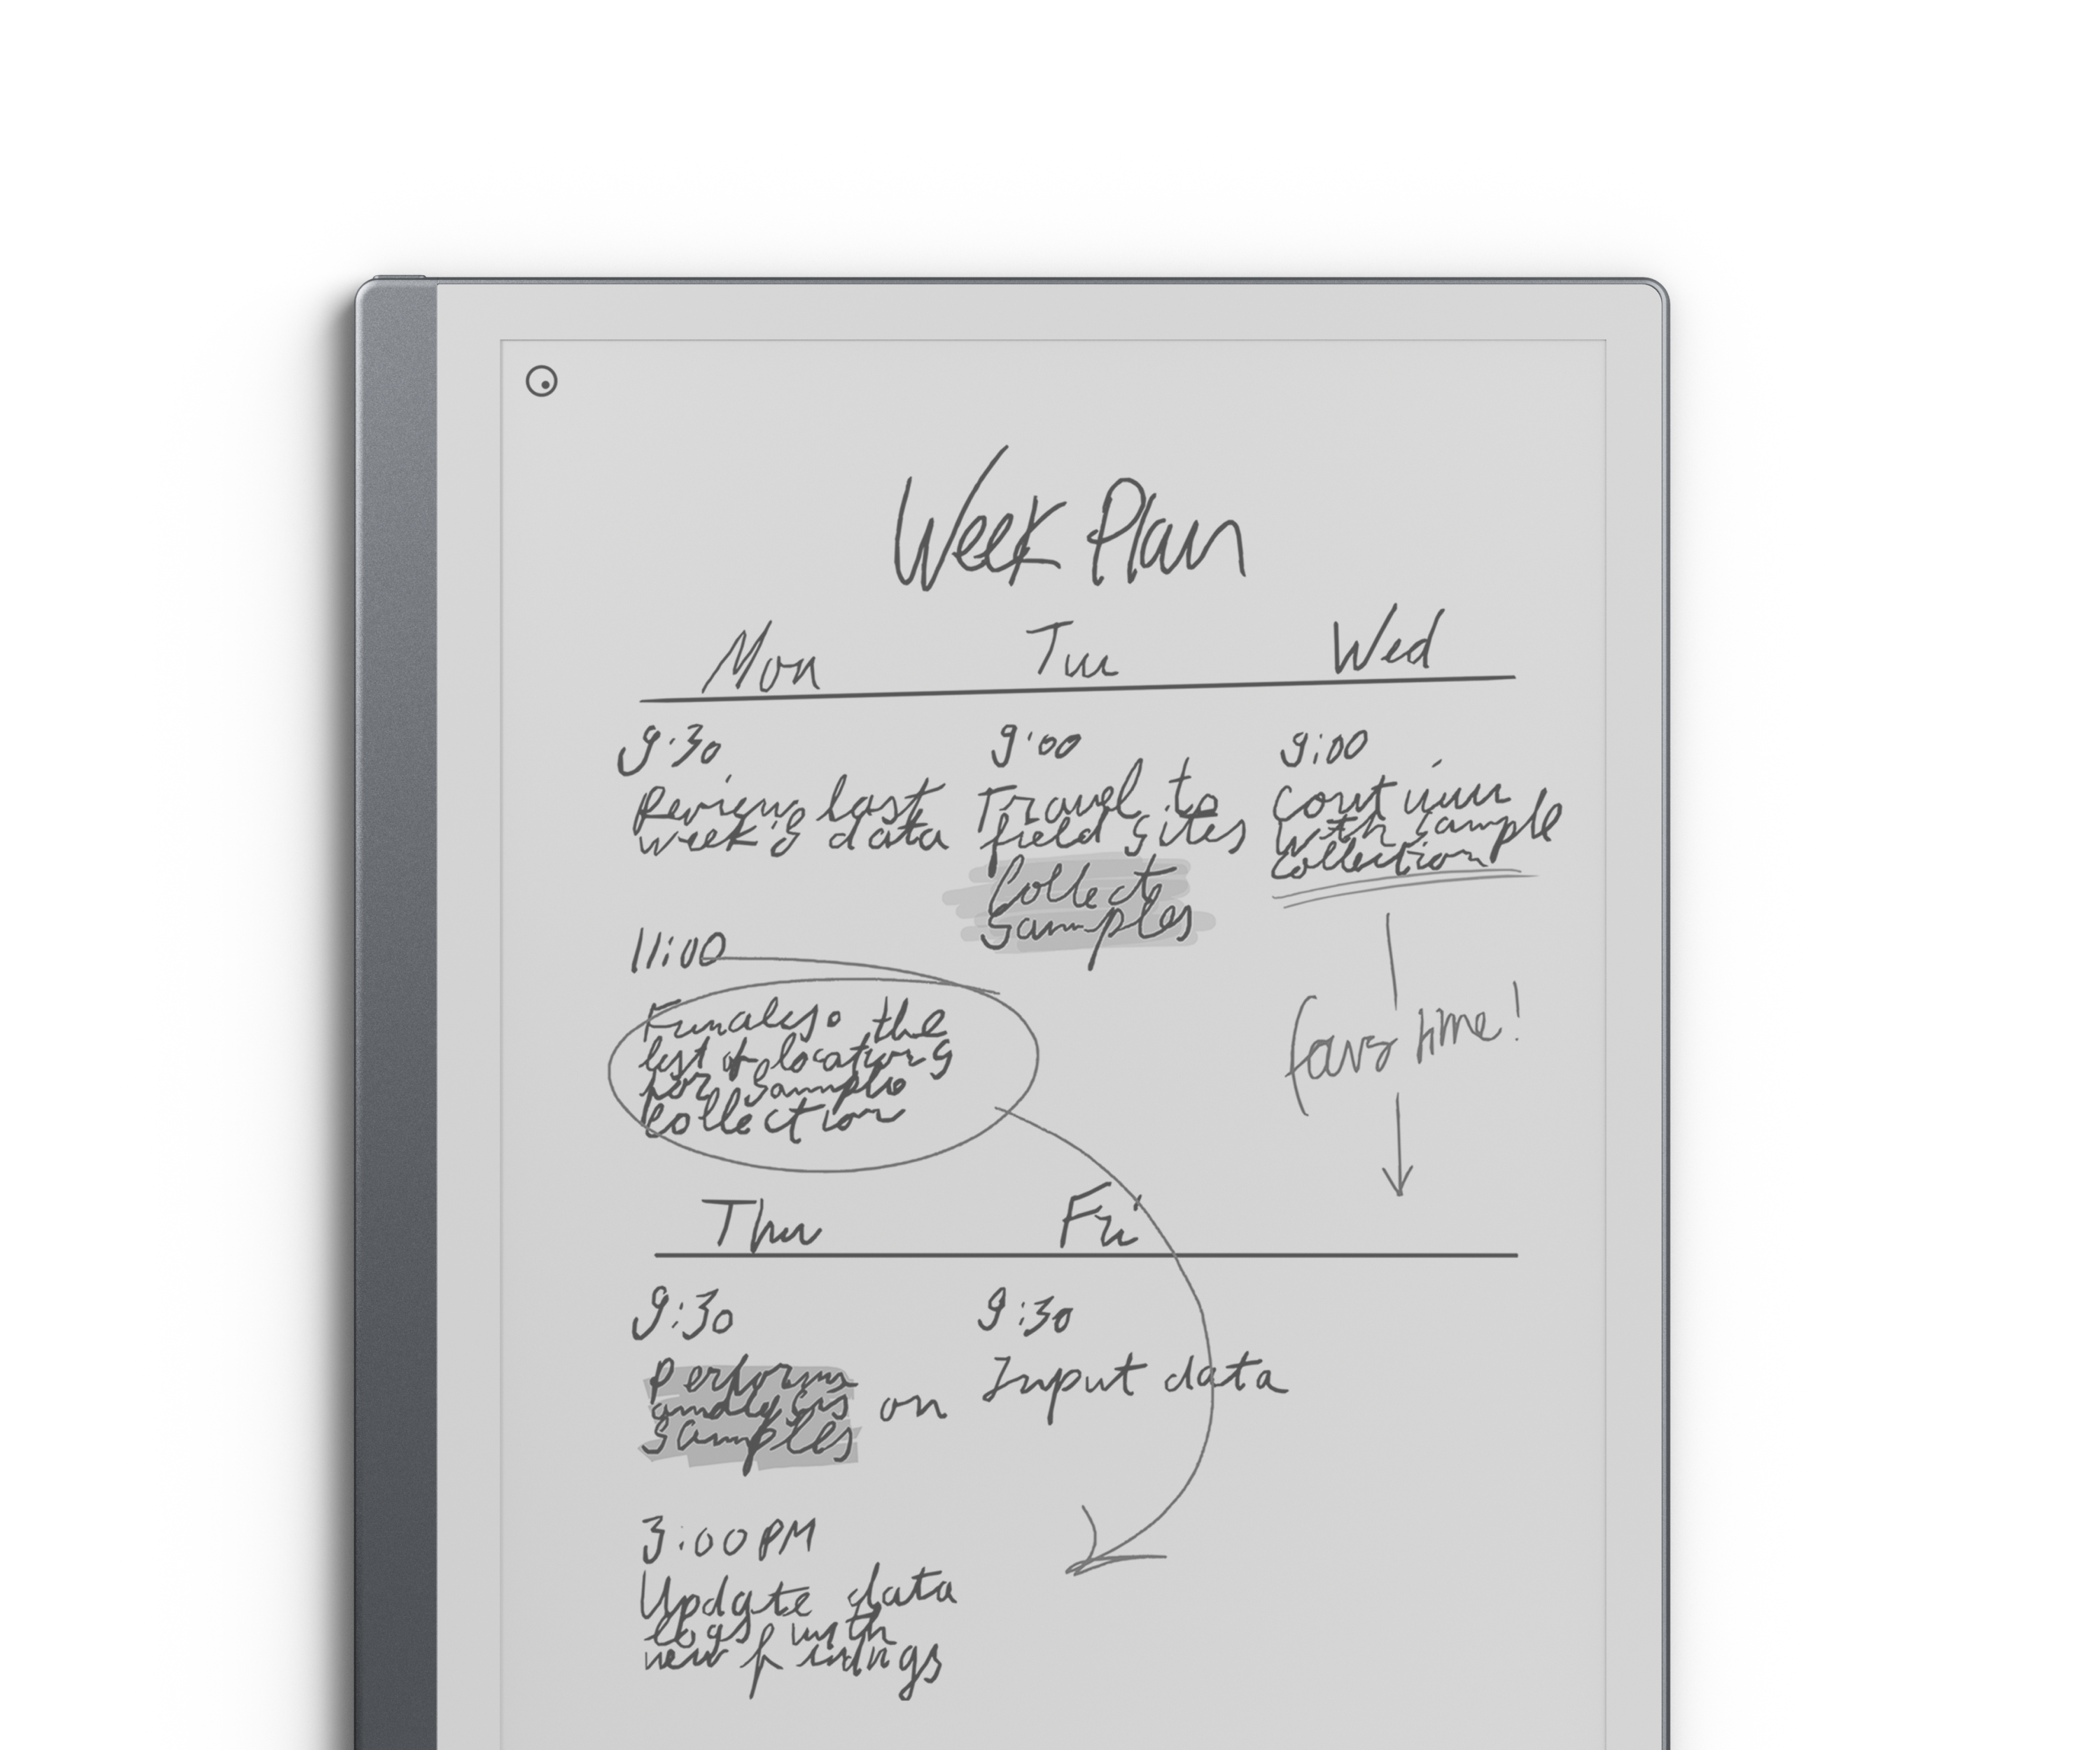 Week Plan
Mon Tue Wed
9:30
Review last
week's data
11:00
Finalise the
list of locations
for sample
collection
9:00
Travel to
field sites
Collect
samples
9:00
continue
with sample
collection
time!
Thu Fri
9:30
Perform
analysis on
samples
3:00 PM
Update data
logs with
new findings
9:30
Input data